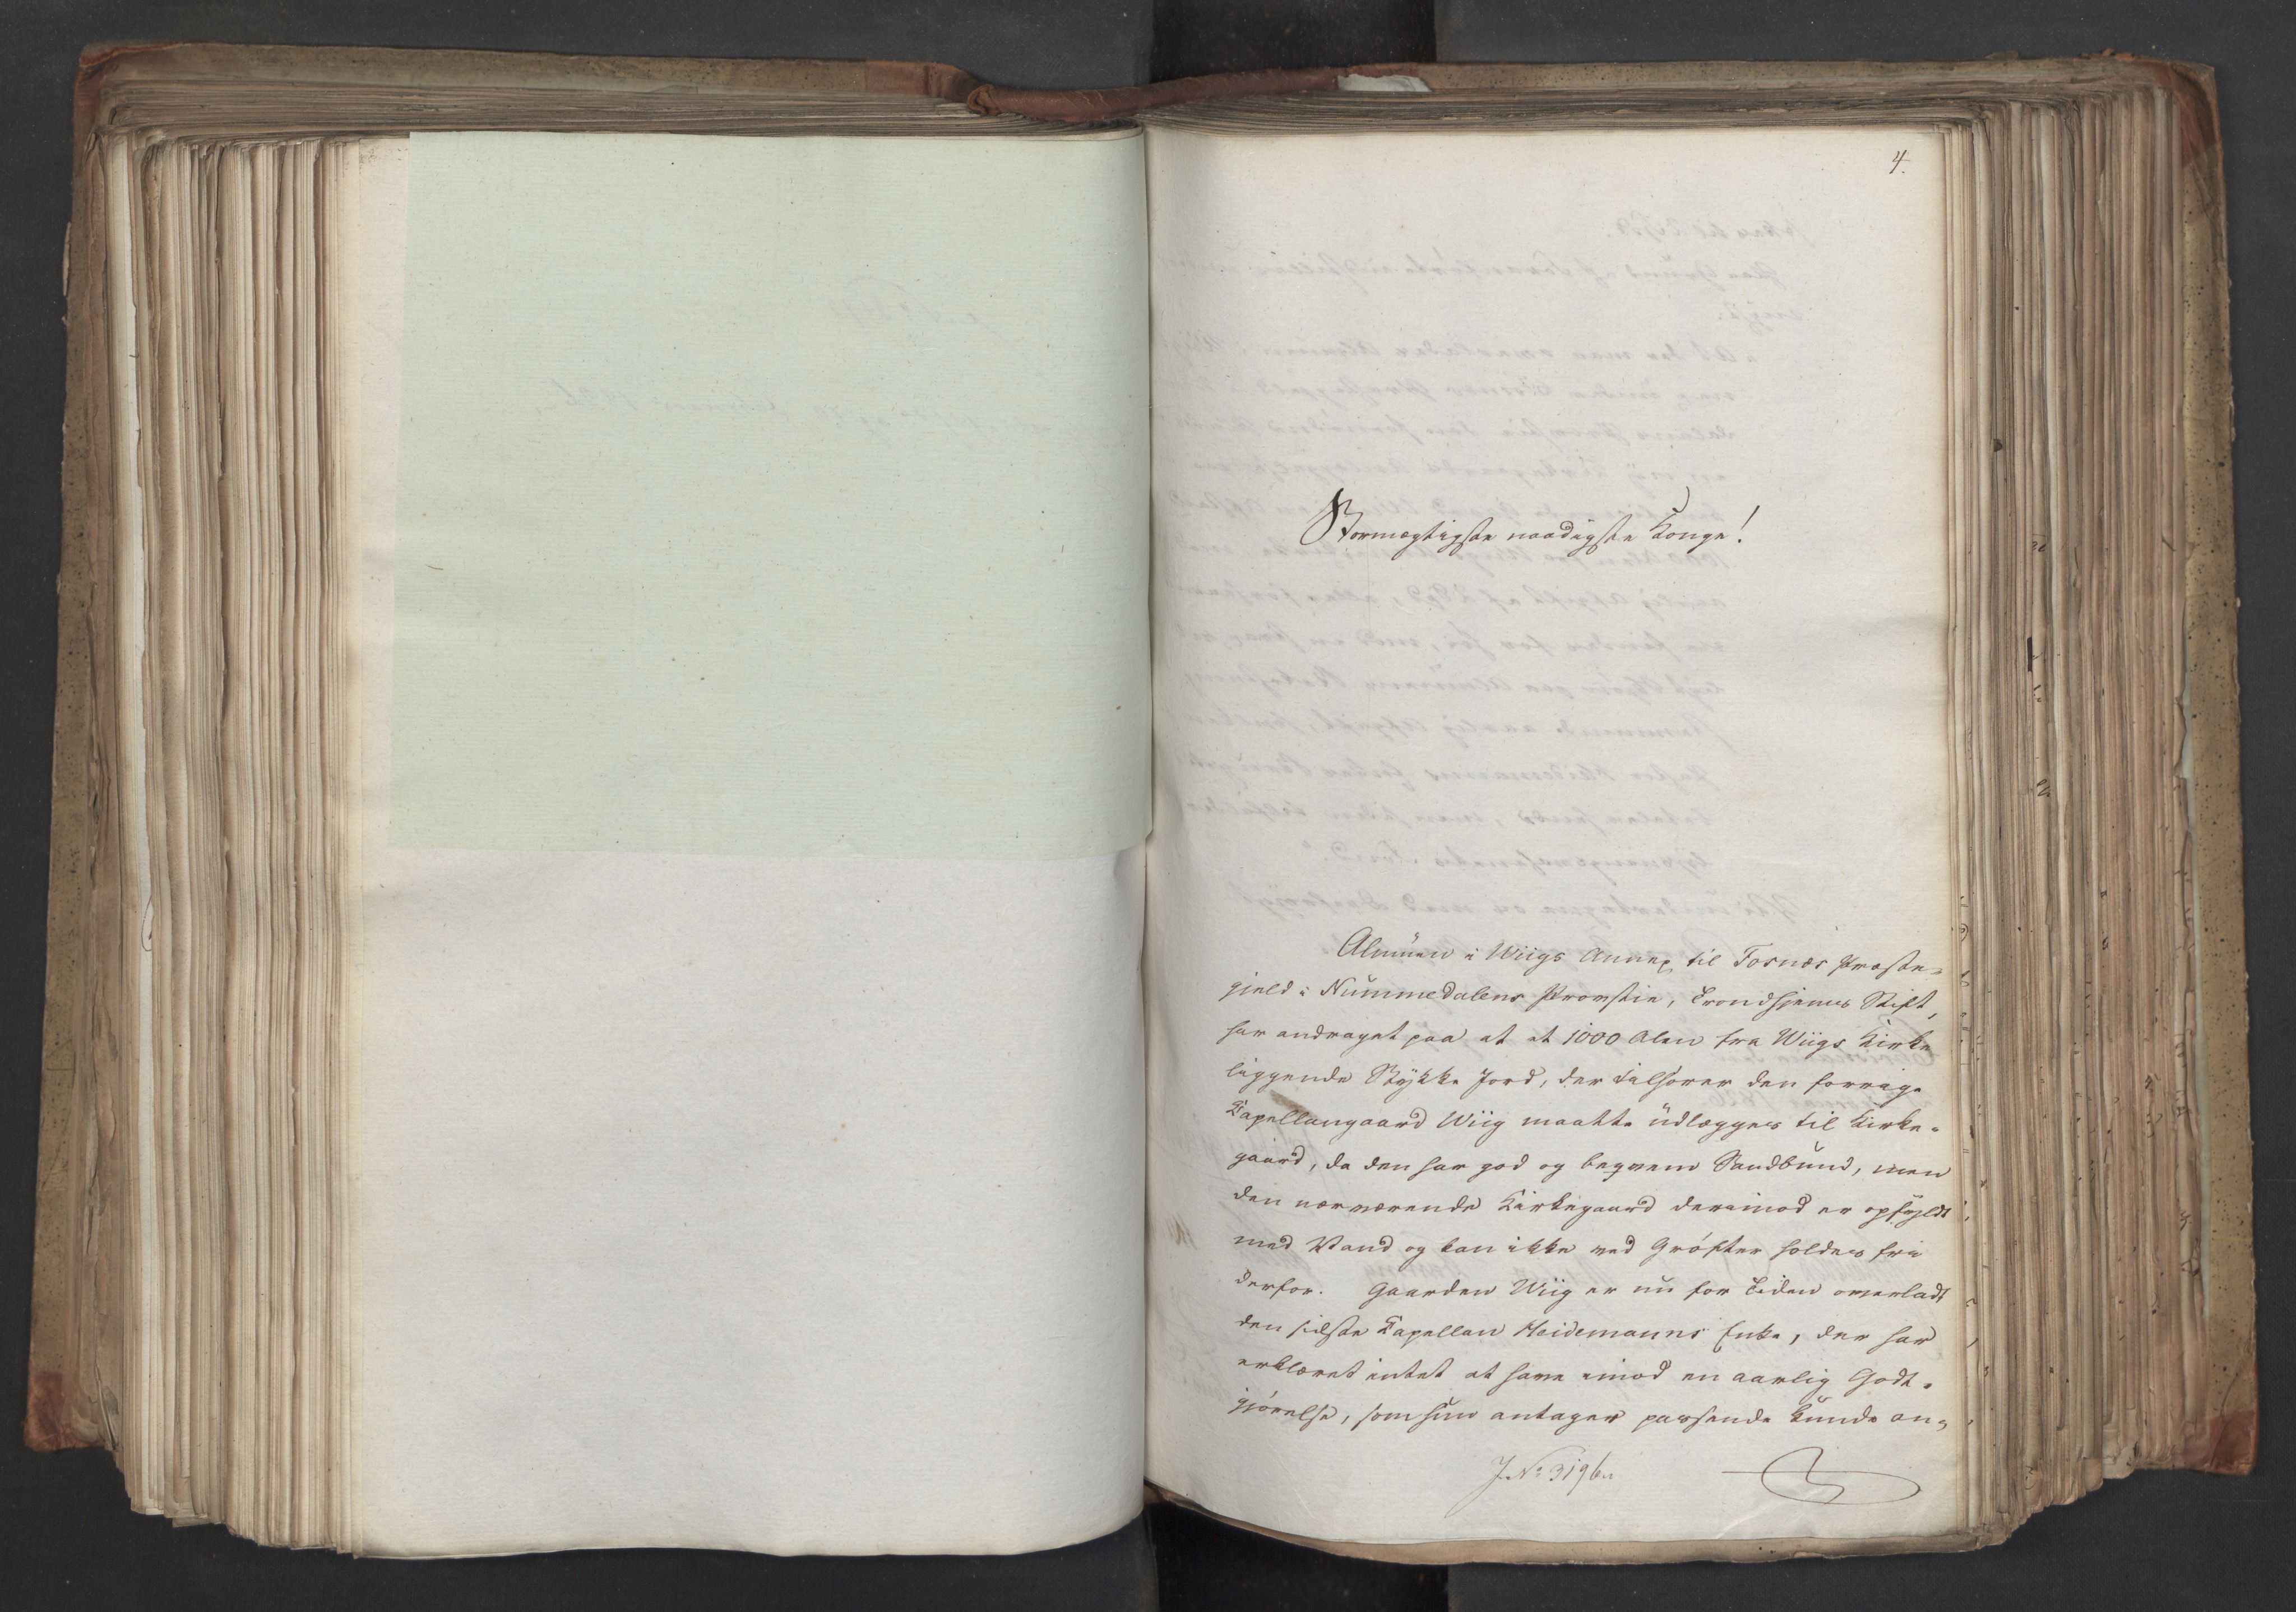 4.
Stormægtigste naadigste Konge!
Almuen i Wiigs Annex til Fosnæs Præste-
gjeld i Nummedalens Provstie, Trondhjems Stift,
har andraget paa at et 1000 Alen fra Wiigs Kirke
liggende Stykke Jord, der tilhører den forrige
Capellangaard Wiig maatte udlægges til Kirke-
gaard, da den har god og beqvem Sandbund, men
den nærværende Kirkegaard derimod er opfyldt
med Vand og kan ikke ved Grøfter holdes fri
derfor. Gaarden Wiig er nu for Tiden overladt
den sidste Capellan Heidemanns Enke, der har
erklæret intet at have imod en aarlig Godt-
gjørelse, som hun antager passende kunde an-
J. No 3196